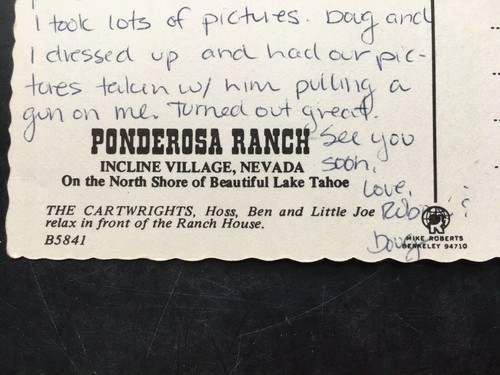 I took lots of pictures. Doug and
I dressed up and had our pic-
tures taken w/ him pulling a
gun on me. Turned out great.
PONDEROSA RANCH See you
INCLINE VILLAGE, NEVADA soon,
On the North Shore of Beautiful Lake Tahoe
Love,
THE CARTWRIGHTS, Hoss, Ben and Little Joe
relax in front of the Ranch House.
MIKE ROBERTS
B5841 Doug BERKELEY 94710